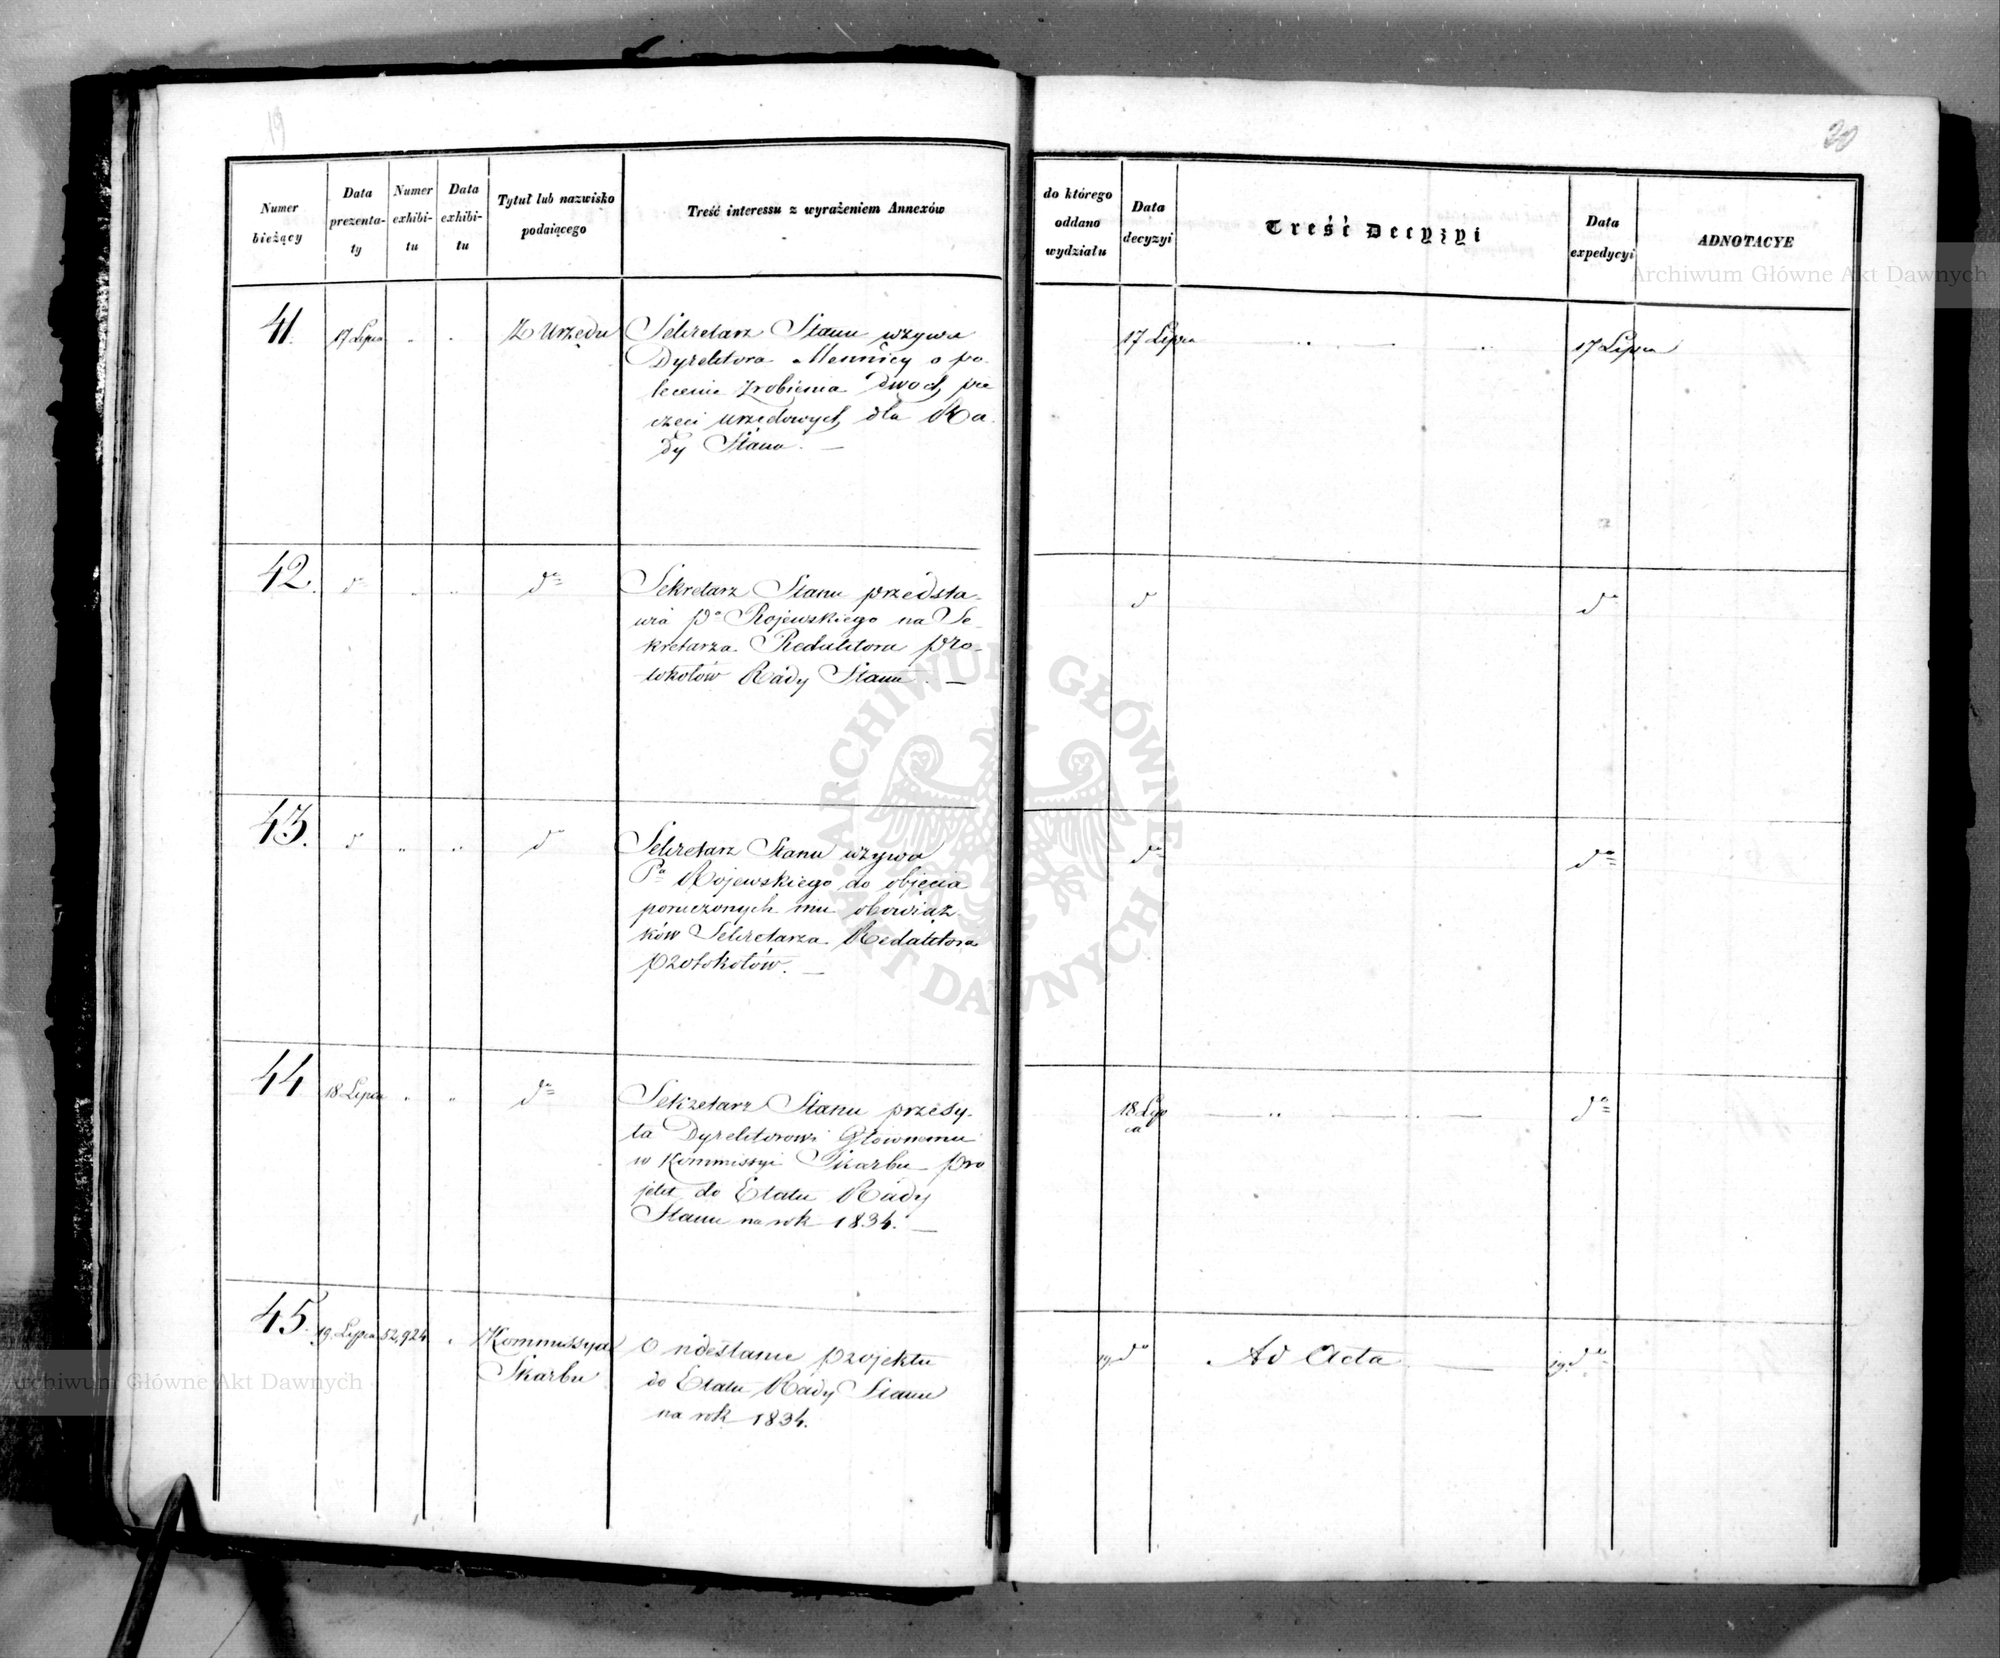 19
Numer bieżący
Data prezenta-ty
Numer exhibi-tu
Data exhibi-tu
Tytuł lub nazwisko podaiącego
Treść interessu z wyrażeniem Annexów
41.
17 Lipca
Z Urzędu
Sekretarz Stanu wzywa
Dyrektora Mennicy o po-
lecenie zrobienia dwóch pie
częci urzędowych dla Ra-
dy Stanu. —
42.
do
do
Sekretarz Stanu przedsta-
wia Pa Rojewskiego na Se-
kretarza Redaktora pro-
tokołów Rady Stanu. —
43.
d
d
Sekretarz Stanu wzywa
Pa Rojewskiego do objęcia
poruczonych mu obowiąz
ków Sekretarza Redaktora
protokołów. —
44
18 Lipca
do
Sekretarz Stanu przesy-
ła Dyrektorowi Głównemu
w Kommissyi Skarbu pro
jekt do Etatu Rady
Stanu na rok 1834. —
45.
19. Lipca
52,924
Kommissya
Skarbu
O nadesłanie projektu
do Etatu Rady Stanu
na rok 1834.
20
do którego oddano wydziału
Data decyzyi
Treść Decyzyi
Data expedycyi
ADNOTACYE
17 Lipca
17 Lipca
d
do
do
do
18 Lip
ca
do
19. do
Ad Acta —
19. do
Archiwum Główne Akt Dawnych
Archiwum Główne Akt Dawnych
ARCHIWUM GŁÓWNE AKT DAWNYCH